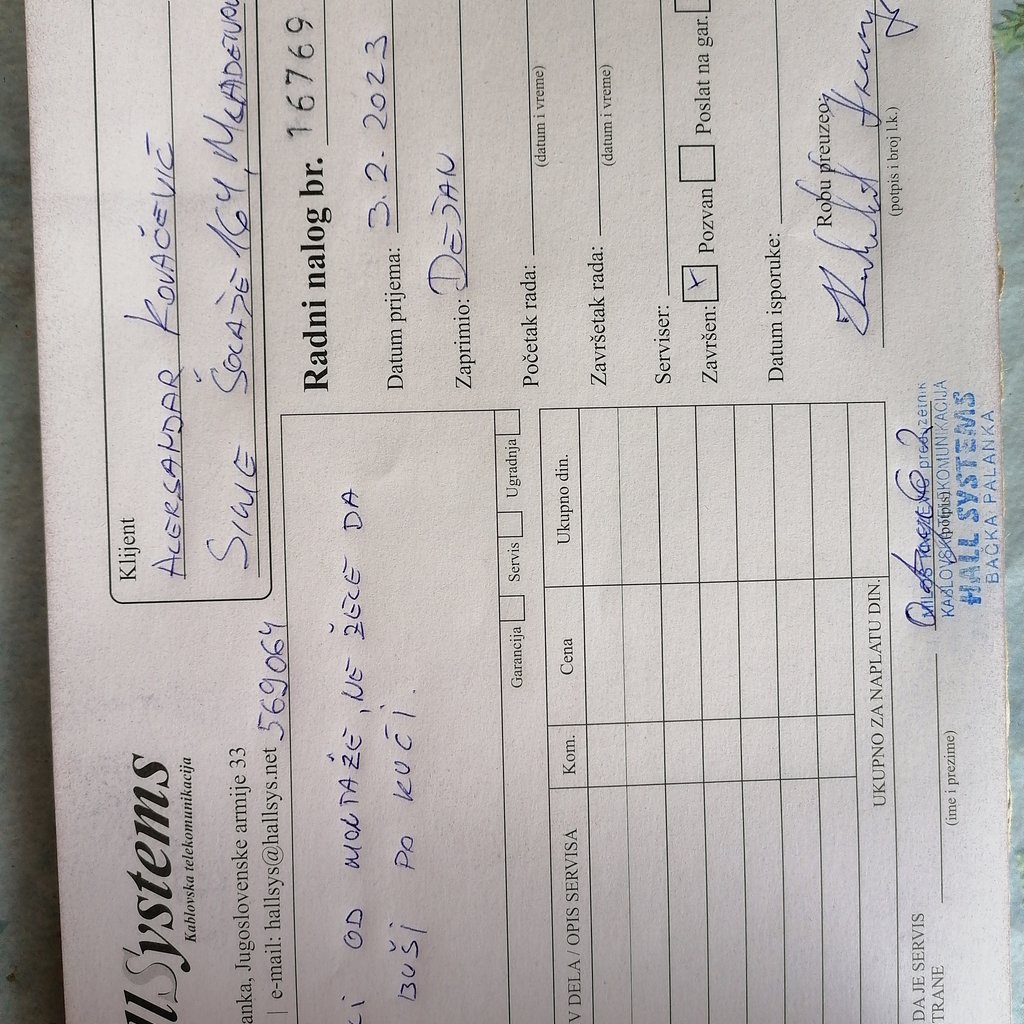 llSystems
Kablovska telekomunikacija
anka, Jugoslovenske armije 33
| e-mail: hallsys@hallsys.net 569064
Klijent
ALEKSANDAR KOVAČEVIĆ
SIME ŠOLAJE 164, MLADENOVO
KI OD MONTAŽE, NE ŽELE DA
BUŠI PO KUĆI.
Garancija Servis Ugradnja
Radni nalog br. 16769
Datum prijema: 3.2.2023
Zaprimio: DEJAN
Početak rada:
(datum i vreme)
Završetak rada:
(datum i vreme)
Serviser:
Završen: Pozvan Poslat na gar.
Datum isporuke:
V DELA / OPIS SERVISA Kom. Cena Ukupno din.
UKUPNO ZA NAPLATU DIN.
Robu preuzeo:
(potpis i broj l.k.)
DA JE SERVIS
TRANE
(ime i prezime)
(potpis)
preduzetnik
KABLOVSKA KOMUNIKACIJA
HALL SYSTEMS
BAČKA PALANKA